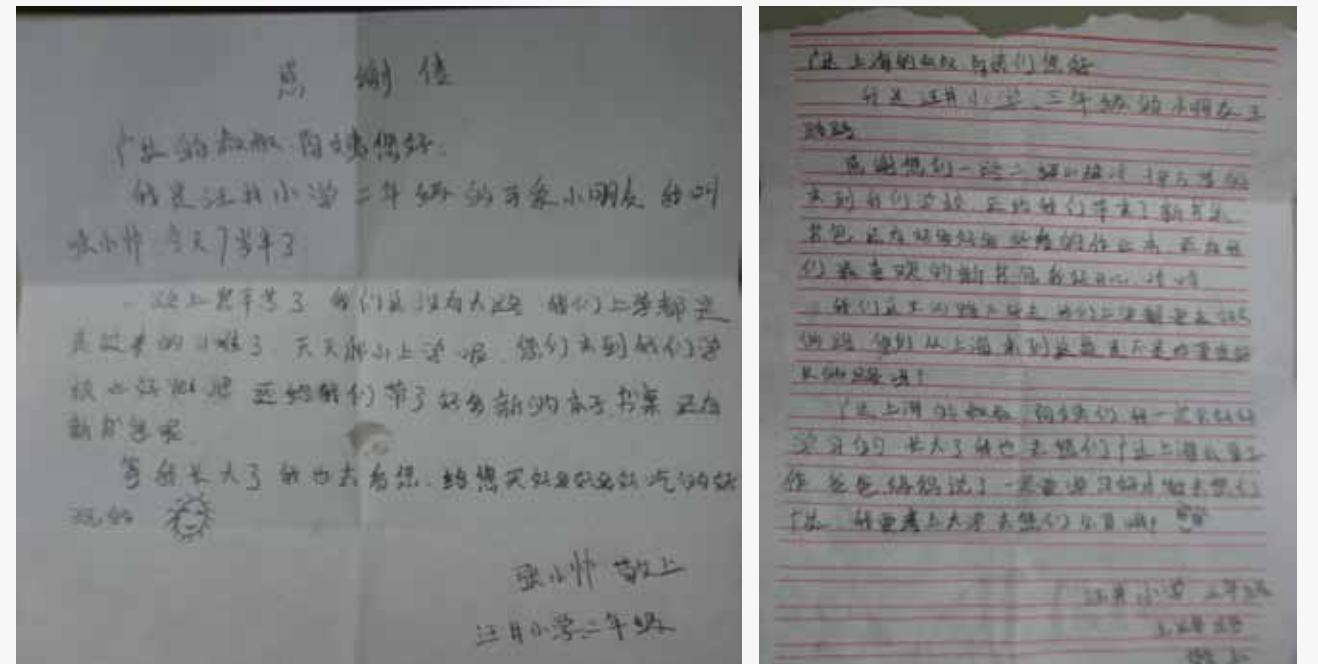 感 谢 信
广达的叔叔 阿姨您好:
我是汪井小学二年级的可爱小朋友 我叫
张小帅 今天7岁半了
一路上辛苦了 我们这没有大路 我们上学都是
走过来的 习惯了 天天爬山上学呢 您们来到我们学
校 还给我们带了好多新的本子 书案 还有
新书包呢
等我长大了我也去看您.给您买好多好多好吃的好
玩的
张小帅 敬上
汪井小学二年级
广达上海的叔叔 阿姨们您好
我是汪井小学 三年级的小朋友王
路路
感谢您们一路 辛苦的
来到我们学校 还给我们带来了新书
书包 还有好多好多 的作业本 还有我
们最喜欢的新书包我好开心
我们这 我们上学都是走
的路 您们从上海来到这 是不是也要走好
长的路呢?
广达上海的叔叔 阿姨们 我一定会好好
学习的 长大了我也去您们广达上海 工
作 爸爸妈妈说了 一定要学习好才能去您们
广达 我要考上大学去您们公司哦!
汪井小学 三年级
王路路
敬上